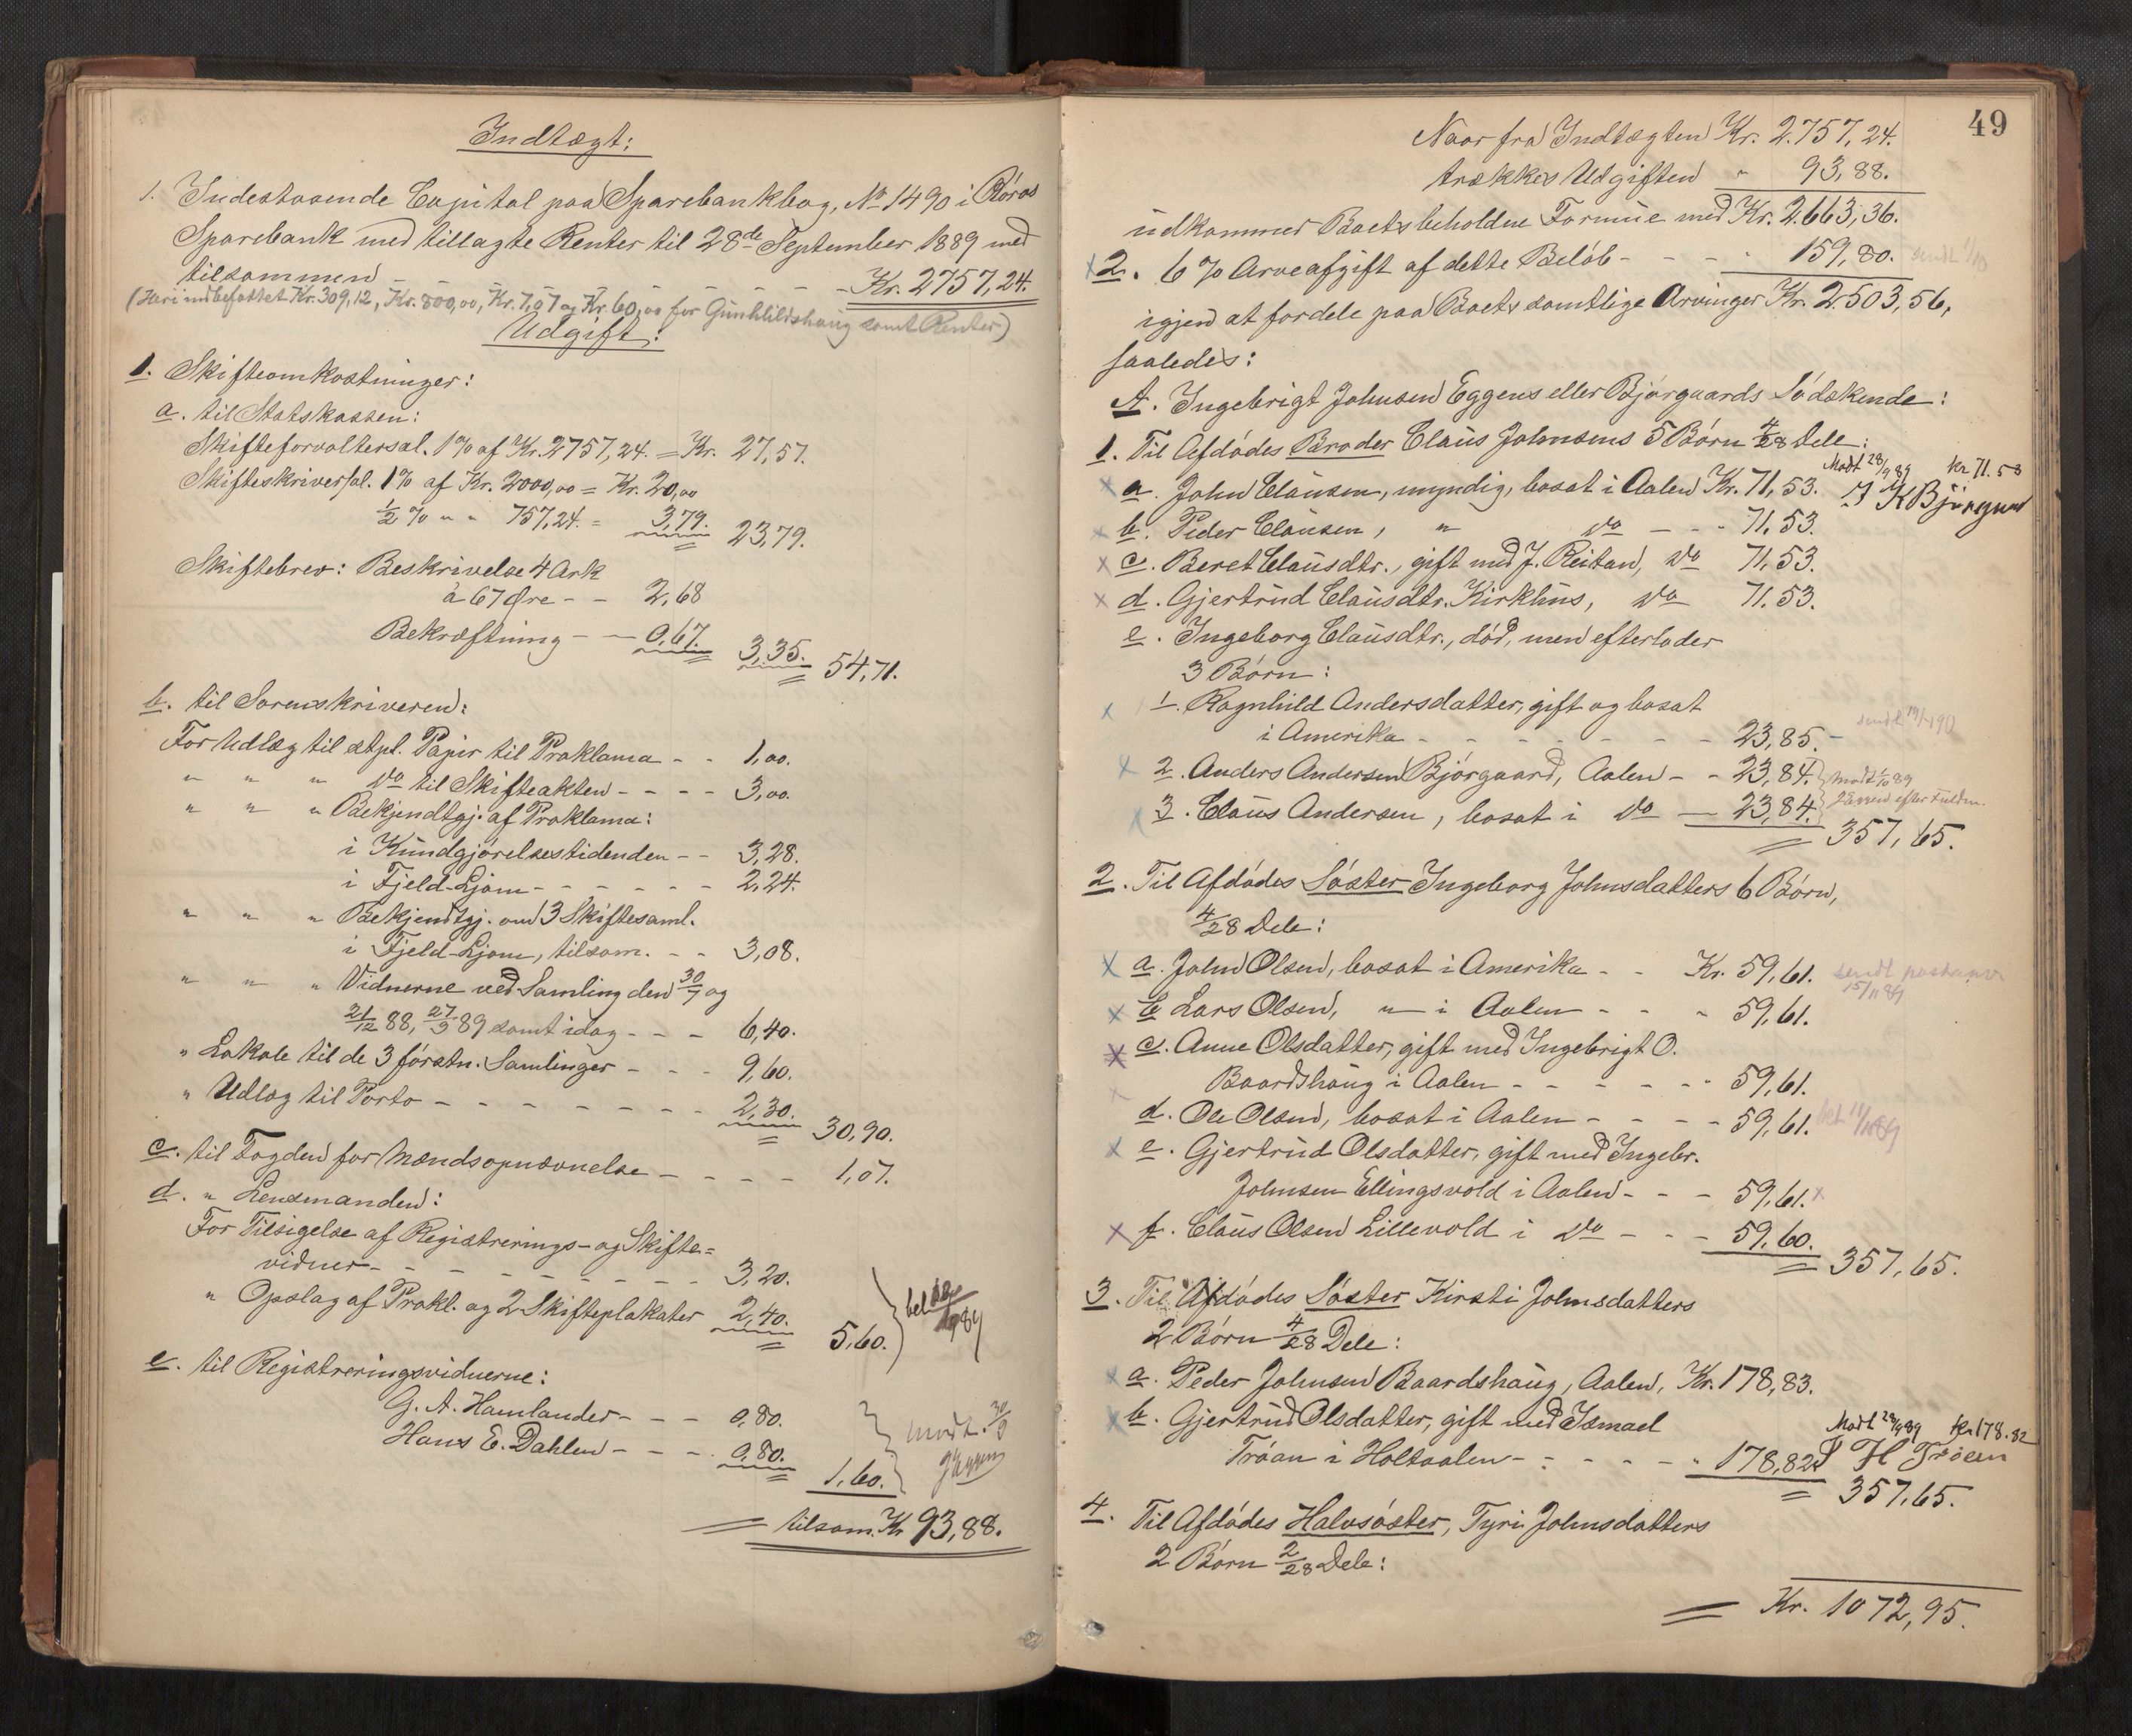 Indtægt:
1. Indestaaende Capital paa Sparebankbog, No 1490 i Röros
Sparebank med tillagte Renter til 28de September 1889 med
tilsammen - - - - - - - Kr. 2757,24.
(Heri indbefattet Kr. 309,12, Kr. 800,00, Kr. 7,07 og Kr. 60,00 for Gunhildshaug samt Renter)
Udgift:
1. Skifteomkostninger:
a. til Statskassen:
Skifteforvaltersal. 1% af Kr. 2757,24. = Kr. 27,57.
Skifteskriversal. 1% af Kr. 2000,00 = Kr. 20,00
½% " " 757,24. = 3,79. 23,79.
Skiftebrev: Beskrivelse 4 Ark
à 67 Øre - - 2,68
Bekræftning - - 0,67. 3,35. 54,71.
b. til Sorenskriveren:
For Udlæg til stpl. Papir til Proklama - - 1,00.
" " " do til Skifteakten - - - - 3,00.
" " " Bekjendtgj. af Proklama:
i Kundgjörelsestidenden - - 3,28.
i Fjeld-Ljom - - - - - - 2,24.
" " " Bekjendtgj. om 3 Skiftesaml.
i Fjeld-Ljom, tilsam. - - 3,08.
" " " Vidnerne ved Samling den 30/7 og
21/12 88, 27/3 89 samt idag - - - 6,40.
" Lokale til de 3 förstn. Samlinger - - - 9,60.
" Udlæg til Porto - - - - - - - - 2,30. 30,90.
c. til Fogden for Mændsopnævnelse - - - - 1,07.
d. " Lensmanden:
For Tilsigelse af Registrerings- og Skifte=
vidner - - - - - - - - - 3,20.
" Opslag af Prokl. og 2 Skifteplakater 2,40. 5,60.
e. til Registreringsvidnerne:
G. A. Hamlander - - - 0,80.
Hans E. Dahlen - - - 0,80. 1,60.
modt. 30/9
= tilsam. Kr 93,88.
49
Naar fra Indtægten Kr. 2.757,24.
trækkes Udgiften " 93,88.
udkommer Boets beholdne Formue med Kr. 2.663,36.
2. 6% Arveafgift af dette Belöb - - - 159,80.
igjen at fordele paa Boets samtlige Arvinger Kr. 2503,56,
saaledes:
A. Ingebrigt Johnsen Eggens eller Bjørgaards Södskende:
1. Til Afdödes Broder Claus Johnsens 5 Börn 4/28 Dele:
Modt 28/9 89 kr 71.53
a. John Clausen, myndig, bosat i Aalen Kr. 71,53.
b. Peder Clausen, " do - - - 71,53.
c. Beret Clausdtr., gift med J. Reitan, do 71,53.
d. Gjertrud Clausdtr. Kirkhus, do 71,53.
e. Ingeborg Clausdtr., död, men efterlader
3 Börn:
1. Ragnhild Andersdatter, gift og bosat
i Amerika - - - - - - - 23,85.-
2. Anders Andersen Bjørgaard, Aalen - - 23,84.
3. Claus Andersen, bosat i do - 23,84.
357,65.
2. Til Afdödes Söster Ingeborg Johnsdatters 6 Börn,
4/28 Dele:
a. John Olsen, bosat i Amerika - - Kr. 59,61.
b. Lars Olsen, " i Aalen - - - 59,61.
c. Anne Olsdatter, gift med Ingebrigt O.
Baardshaug i Aalen - - - - - - 59,61.
d. Ole Olsen, bosat i Aalen - - - - 59,61.
e. Gjertrud Olsdatter, gift med Ingebr.
Johnsen Ellingsvold i Aalen - - - 59,61.
f. Claus Olsen Lillevold i do - - - 59,60.
357,65.
3. Til Afdödes Söster Kirsti Johnsdatters
2 Börn 4/28 Dele:
a. Peder Johnsen Baardshaug, Aalen, Kr. 178,83.
b. Gjertrud Olsdatter, gift med Ismael
Modt 28/9 89 kr 178.82
Tröan i Holtaalen - - - - - - 178,82
357,65.
4. Til Afdödes Halvsöster, Tyri Johnsdatters
2 Börn 2/28 Dele:
= Kr. 1072,95.